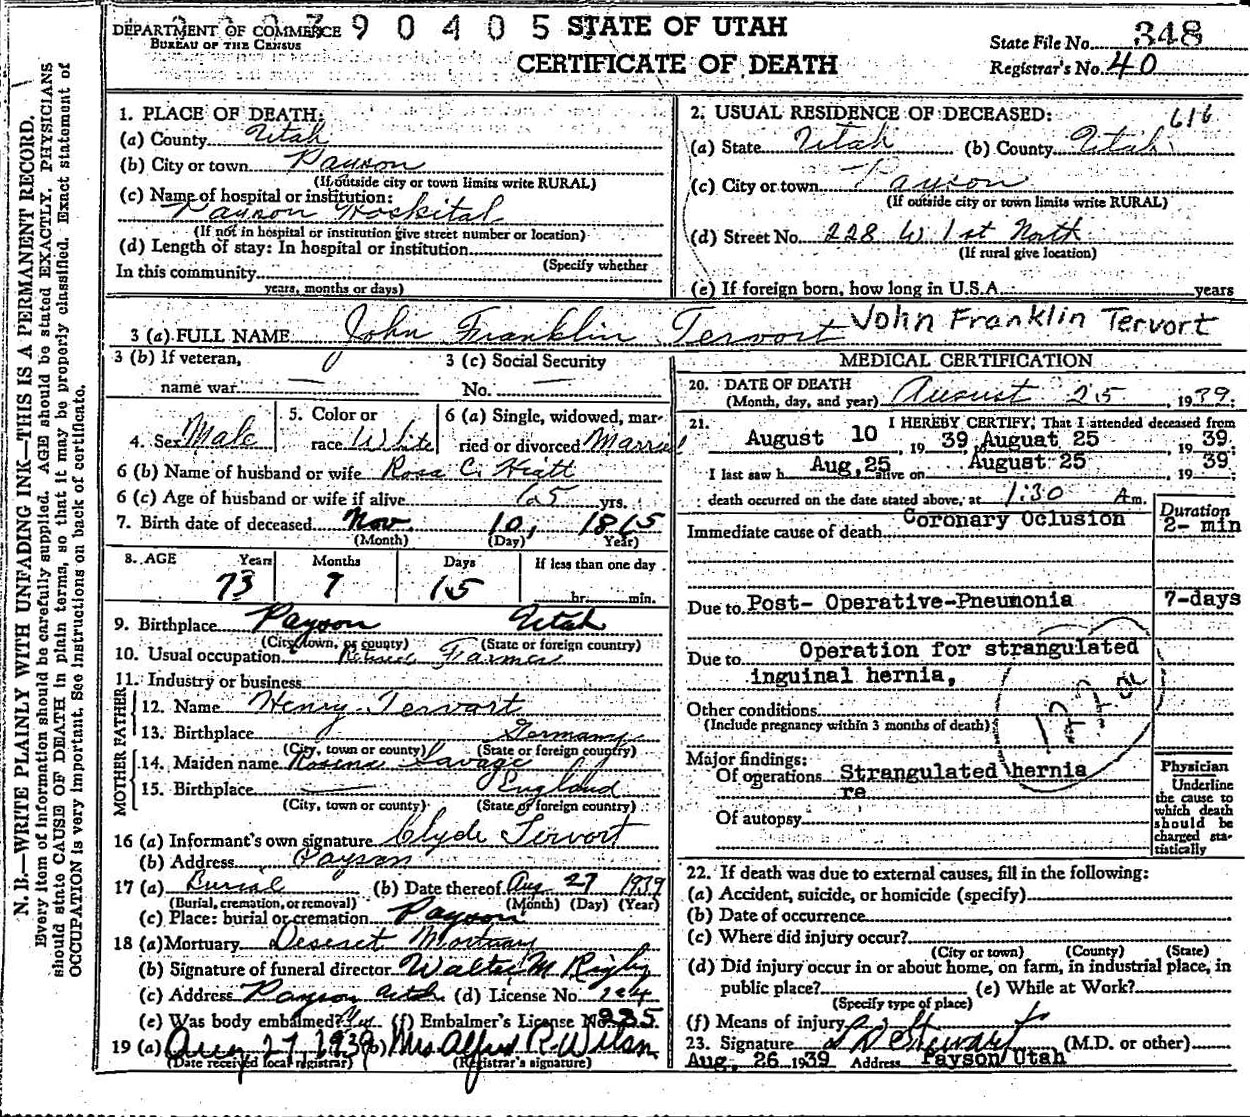 390405 STATE OF UTAH
DEPARTMENT OF COMMERCE
BUREAU OF THE CENSUS
CERTIFICATE OF DEATH
State File No. 348
Registrar's No. 40
N. B.—WRITE PLAINLY WITH UNFADING INK—THIS IS A PERMANENT RECORD.
Every item of information should be carefully supplied. AGE should be stated EXACTLY. PHYSICIANS
should state CAUSE OF DEATH in plain terms, so that it may be properly classified. Exact statement of
OCCUPATION is very important. See instructions on back of certificate.
1. PLACE OF DEATH:
(a) County Utah
(b) City or town Payson
(If outside city or town limits write RURAL)
(c) Name of hospital or institution:
Payson Hospital
(If not in hospital or institution give street number or location)
(d) Length of stay: In hospital or institution
(Specify whether
In this community
years, months or days)
2. USUAL RESIDENCE OF DECEASED: 616
(a) State Utah (b) County Utah
(c) City or town Payson
(If outside city or town limits write RURAL)
(d) Street No. 228 W 1st North
(If rural give location)
(e) If foreign born, how long in U.S.A. years
3 (a) FULL NAME John Franklin Tervort John Franklin Tervort
3 (b) If veteran, 3 (c) Social Security
name war — No. —
4. Sex Male
5. Color or
race White
6 (a) Single, widowed, mar-
ried or divorced Married
6 (b) Name of husband or wife Rosa C. Hiatt
6 (c) Age of husband or wife if alive 65 yrs.
7. Birth date of deceased Nov 10, 1865
(Month) (Day) (Year)
8. AGE Years Months Days If less than one day
73 9 15 hr. min.
9. Birthplace Payson Utah
(City, town, or county) (State or foreign country)
10. Usual occupation Retired Farmer
11. Industry or business
FATHER
12. Name Henry Tervort
13. Birthplace Germany
(City, town or county) (State or foreign country)
MOTHER
14. Maiden name Rosena Savage
15. Birthplace — England
(City, town or county) (State or foreign country)
16 (a) Informant's own signature Clyde Tervort
(b) Address Payson
17 (a) Burial (b) Date thereof Aug 27 1939
(Burial, cremation, or removal) (Month) (Day) (Year)
(c) Place: burial or cremation Payson
18 (a) Mortuary Deseret Mortuary
(b) Signature of funeral director Walter M Rigby
(c) Address Payson Utah (d) License No. 224
(e) Was body embalmed? Yes (f) Embalmer's License No. 235
19 (a) Aug 27, 1939 (b) Mrs. Alfred R. Wilson
(Date received local registrar) (Registrar's signature)
MEDICAL CERTIFICATION
20. DATE OF DEATH
(Month, day, and year) August 25, 1939.
21. I HEREBY CERTIFY, That I attended deceased from
August 10, 1939, to August 25, 1939.
I last saw h Aug, 25 alive on August 25, 1939
death occurred on the date stated above, at 1:30 A m.
Duration
Immediate cause of death Coronary Oclusion 2- min
Due to Post- Operative-Pneumonia 7-days
Due to Operation for strangulated
inguinal hernia,
Other conditions
(Include pregnancy within 3 months of death)
Major findings:
Of operations Strangulated hernia
re
Of autopsy
Physician
Underline
the cause to
which death
should be
charged sta-
tistically
22. If death was due to external causes, fill in the following:
(a) Accident, suicide, or homicide (specify)
(b) Date of occurrence
(c) Where did injury occur?
(City or town) (County) (State)
(d) Did injury occur in or about home, on farm, in industrial place, in
public place? (e) While at Work?
(Specify type of place)
(f) Means of injury
23. Signature Stewart (M.D. or other)
Aug. 26 1939 Address Payson Utah